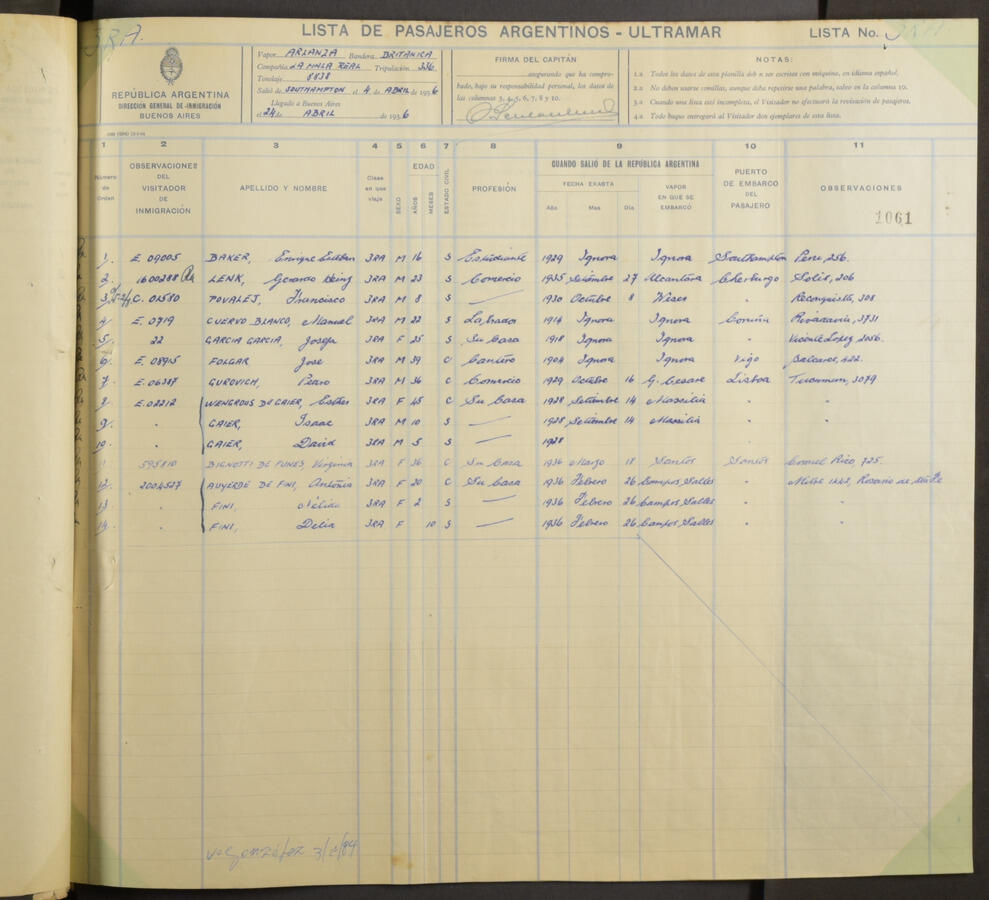 3RA.
LISTA DE PASAJEROS ARGENTINOS - ULTRAMAR
LISTA No.
REPÚBLICA ARGENTINA
DIRECCIÓN GENERAL DE INMIGRACIÓN
BUENOS AIRES
Vapor ARLANZA Bandera BRITANICA
Compañia LA MALA REAL Tripulación 336
Tonelaje 8838
Salió de SOUTHAMPTON el 4 de ABRIL de 1936
Llegado a Buenos Aires
el 24 de ABRIL de 1936
FIRMA DEL CAPITÁN
asegurando que ha comprobado, bajo su responsabilidad personal, los datos de
las columnas 3, 4, 5, 6, 7, 8 y 10.
NOTAS:
1.a Todos los datos de esta planilla deb n ser escritos con máquina, en idioma español.
2.a No deben usarse comillas, aunque deba repetirse una palabra, salvo en la columna 10.
3.a Cuando una lista esté incompleta, el Visitador no efectuará la revisación de pasajeros.
4.a Todo buque entregará al Visitador dos ejemplares de esta lista.
1 2 3 4 5 6 7 8 9 10 11
Número de Orden
OBSERVACIONES DEL VISITADOR DE INMIGRACIÓN
APELLIDO Y NOMBRE
Clase en que viaja
SEXO
EDAD
AÑOS
MESES
ESTADO CIVIL
PROFESIÓN
CUANDO SALIÓ DE LA REPÚBLICA ARGENTINA
FECHA EXACTA
Año Mes Día
VAPOR EN QUE SE EMBARCÓ
PUERTO DE EMBARCO DEL PASAJERO
OBSERVACIONES
1061
1. E. 09005 BAKER, Enrique Esteban 3RA M 16 S Estudiante 1929 Ignora Ignora Southampton Peru, 256.
2. 1600288 LENK, Gerardo Heinz 3RA M 23 S Comercio 1935 27 Alcantara Cherburgo Solis, 206
3. C. 01580 POVALEJ, Francisco 3RA M 8 S — 1930 Octubre 8 Weser " Reconquista, 308
4 E. 0719 CUERVO BLANCO, Manuel 3RA M 22 S Labrador 1914 Ignora Ignora Coruña Rivadavia, 3731
5. 22 GARCIA GARCIA, Josefa 3RA F 25 S Su Casa 1918 Ignora Ignora " Vicente Lopez, 2056.
6. E. 08915 FOLGAR Jose 3RA M 39 C Cantero 1904 Ignora Ignora Vigo Balcarce, 422.
7 E. 06387 GUROVICH, Pedro 3RA M 36 C Comercio 1929 Octubre 16 G. Cesare Lisboa Tucuman, 3079
8 E. 02212 WENGROUS DE GAIER, Esther 3RA F 45 C Su Casa 1928 Setiembre 14 Massilia " "
9. " GAIER, Isaac 3RA M 10 S — 1928 Setiembre 14 Massilia " "
10. " GAIER, David 3RA M 5 S — 1928
595810 BIGNOTTI DE FUNES, Virginia 3RA F 36 C Su Casa 1936 Marzo 18 Santos Santos Coronel Rico, 725.
12 2004527 AUVERDE DE FINI, Antonia 3RA F 20 C Su Casa 1936 Febrero 26 Campos Salles " Mitre Rosario de Sta Fe
13 " FINI, Nélida 3RA F 2 S — 1936 Febrero 26 Campos Salles " "
14. " FINI, Delia 3RA F 10 S — 1936 Febrero 26 Campos Salles " "